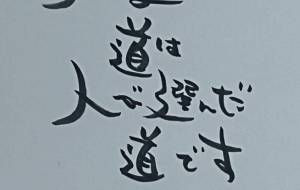 道は
人が選んだ
道です